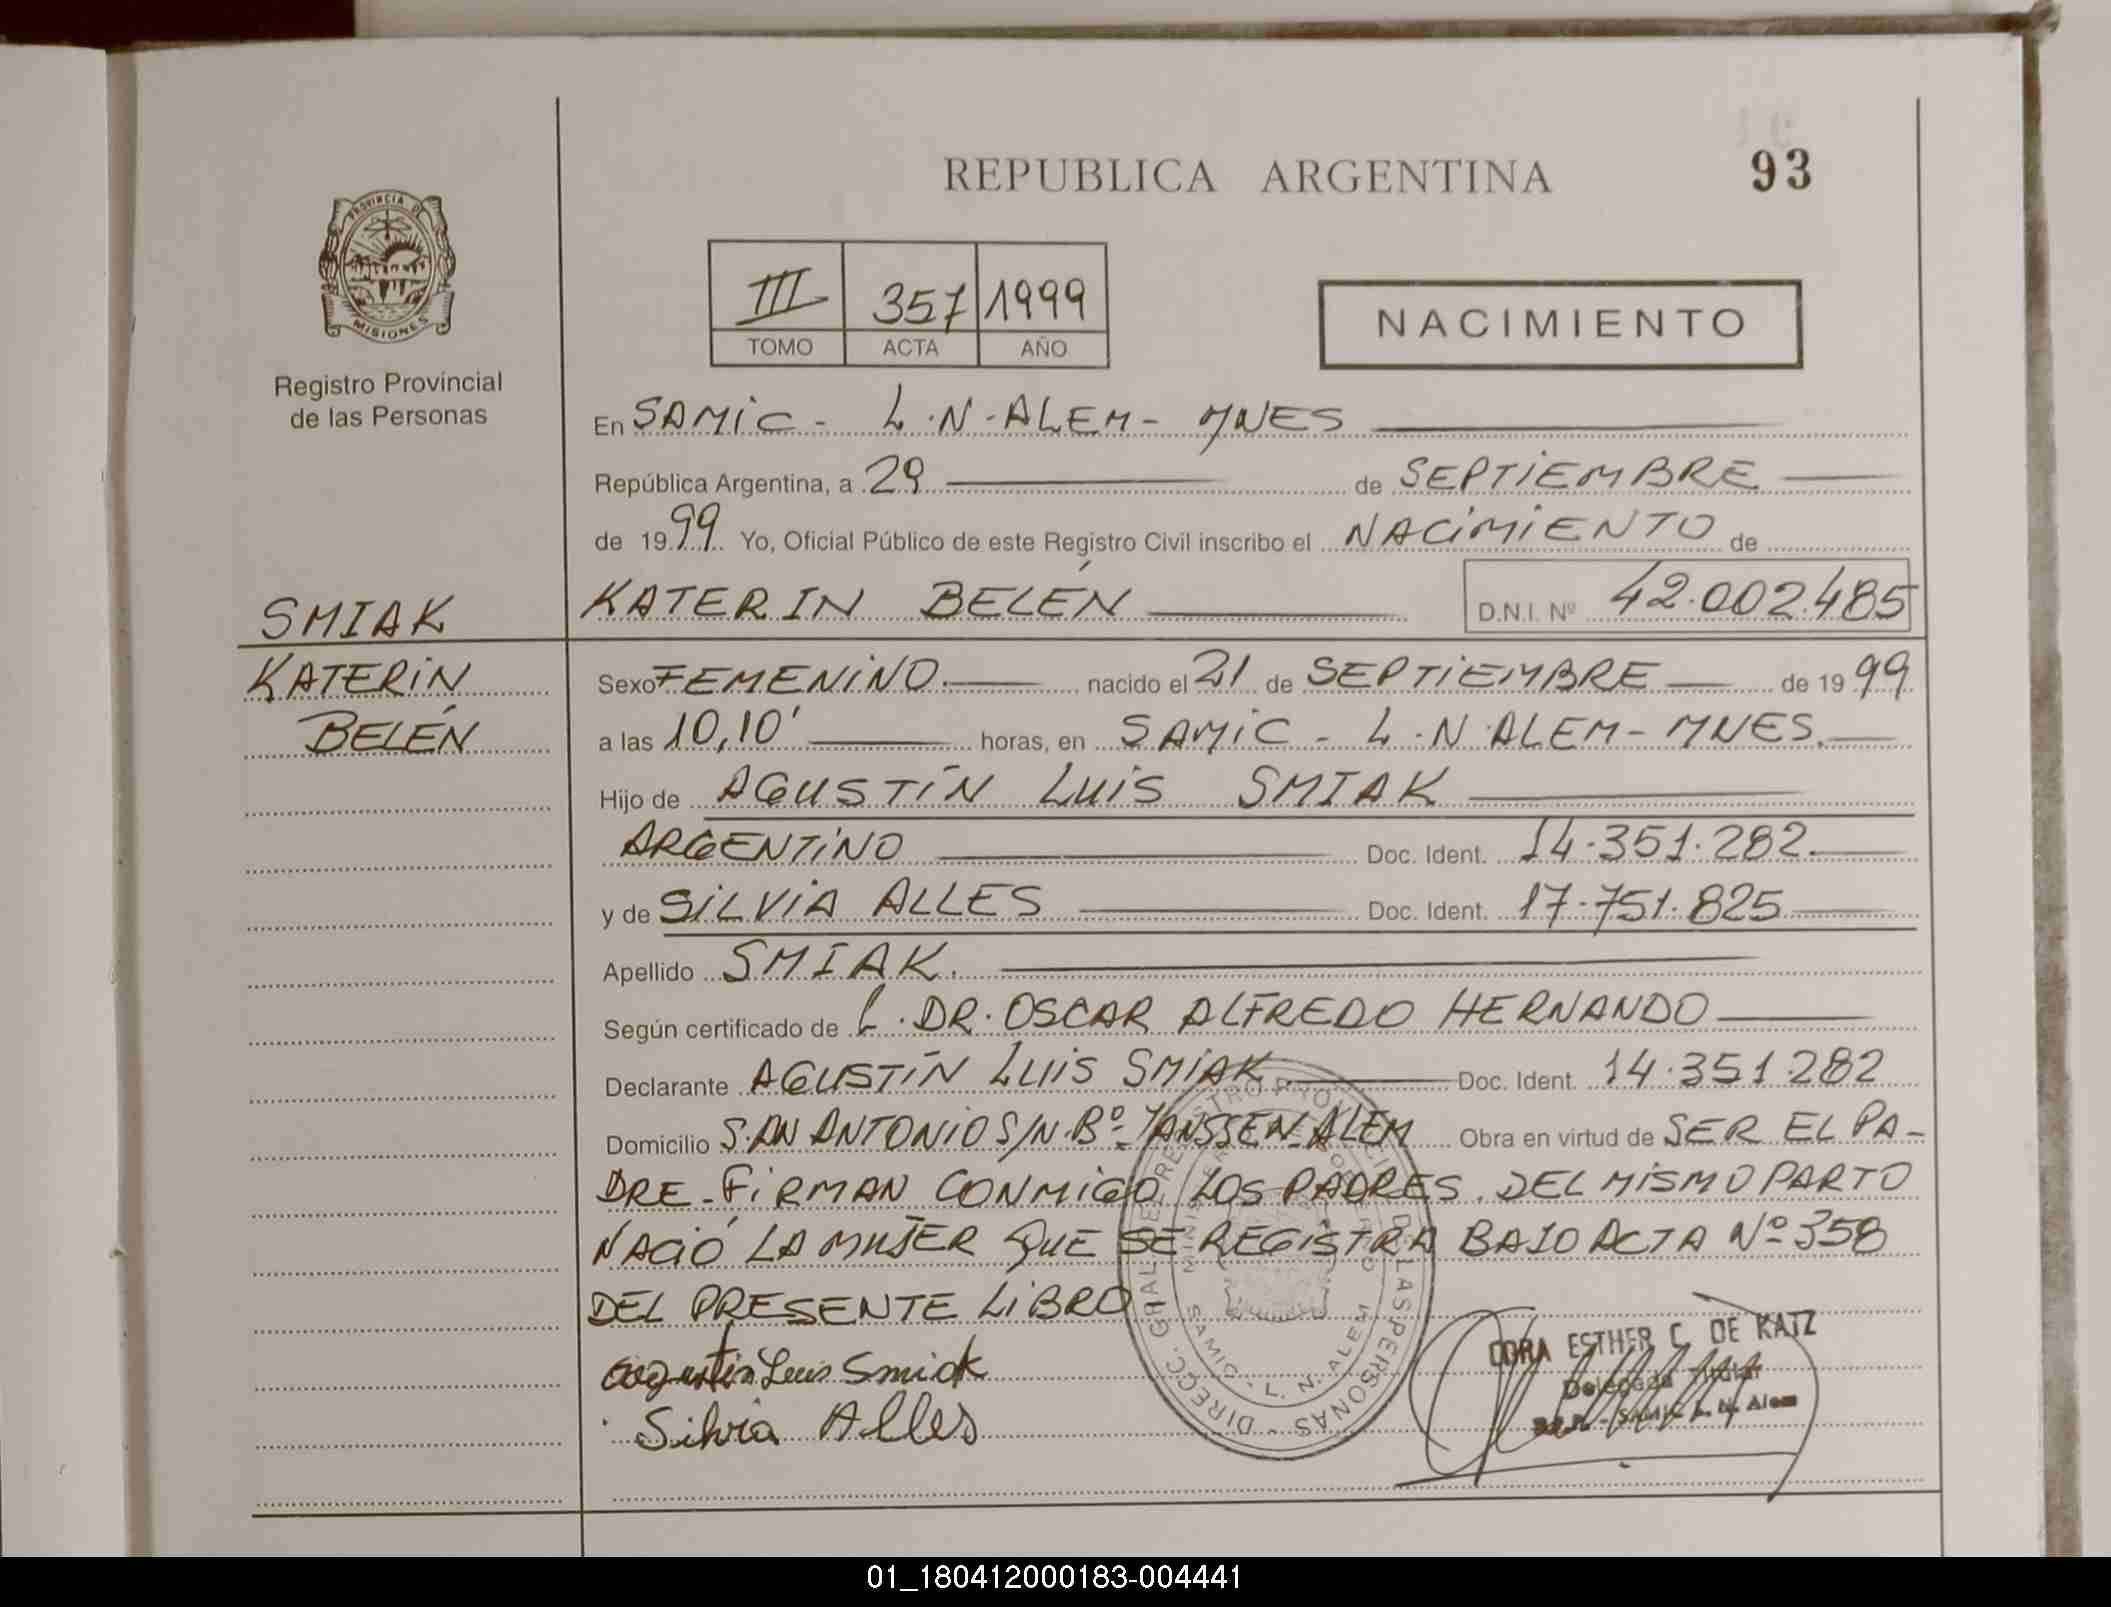 REPUBLICA ARGENTINA
93
PROVINCIA DE
MISIONES
Registro Provincial
de las Personas
III 357 1999
TOMO ACTA AÑO
NACIMIENTO
En SAMIC - L.N. ALEM - MNES
República Argentina, a 29 de SEPTIEMBRE
de 1999 Yo, Oficial Público de este Registro Civil inscribo el NACIMIENTO de
KATERIN BELÉN D.N.I. Nº 42.002.485
SMIAK
KATERIN
BELÉN
Sexo FEMENINO. nacido el 21 de SEPTIEMBRE de 1999
a las 10,10' horas, en SAMIC - L.N. ALEM - MNES.
Hijo de AGUSTÍN LUIS SMIAK
ARGENTINO Doc. Ident. 14.351.282.
y de SILVIA ALLES Doc. Ident. 17.751.825
Apellido SMIAK.
Según certificado de DR. OSCAR ALFREDO HERNANDO
Declarante AGUSTÍN LUIS SMIAK Doc. Ident. 14.351.282
Domicilio SAN ANTONIO S/N. Bº. YANSSEN. ALEM Obra en virtud de SER EL PA-
DRE. FIRMAN CONMIGO LOS PADRES. DEL MISMO PARTO
NACIÓ LA MUJER QUE SE REGISTRA BAJO ACTA Nº 358
DEL PRESENTE LIBRO
Agustin Luis Smiak
Silvia Alles
DIRECC. GRAL. DEL REGISTRO PROVINCIAL DE LAS PERSONAS
SAMIC - L. N. ALEM
DORA ESTHER C. DE KATZ
Delegada Titular
SAMIC L. N. Alem
01_180412000183-004441